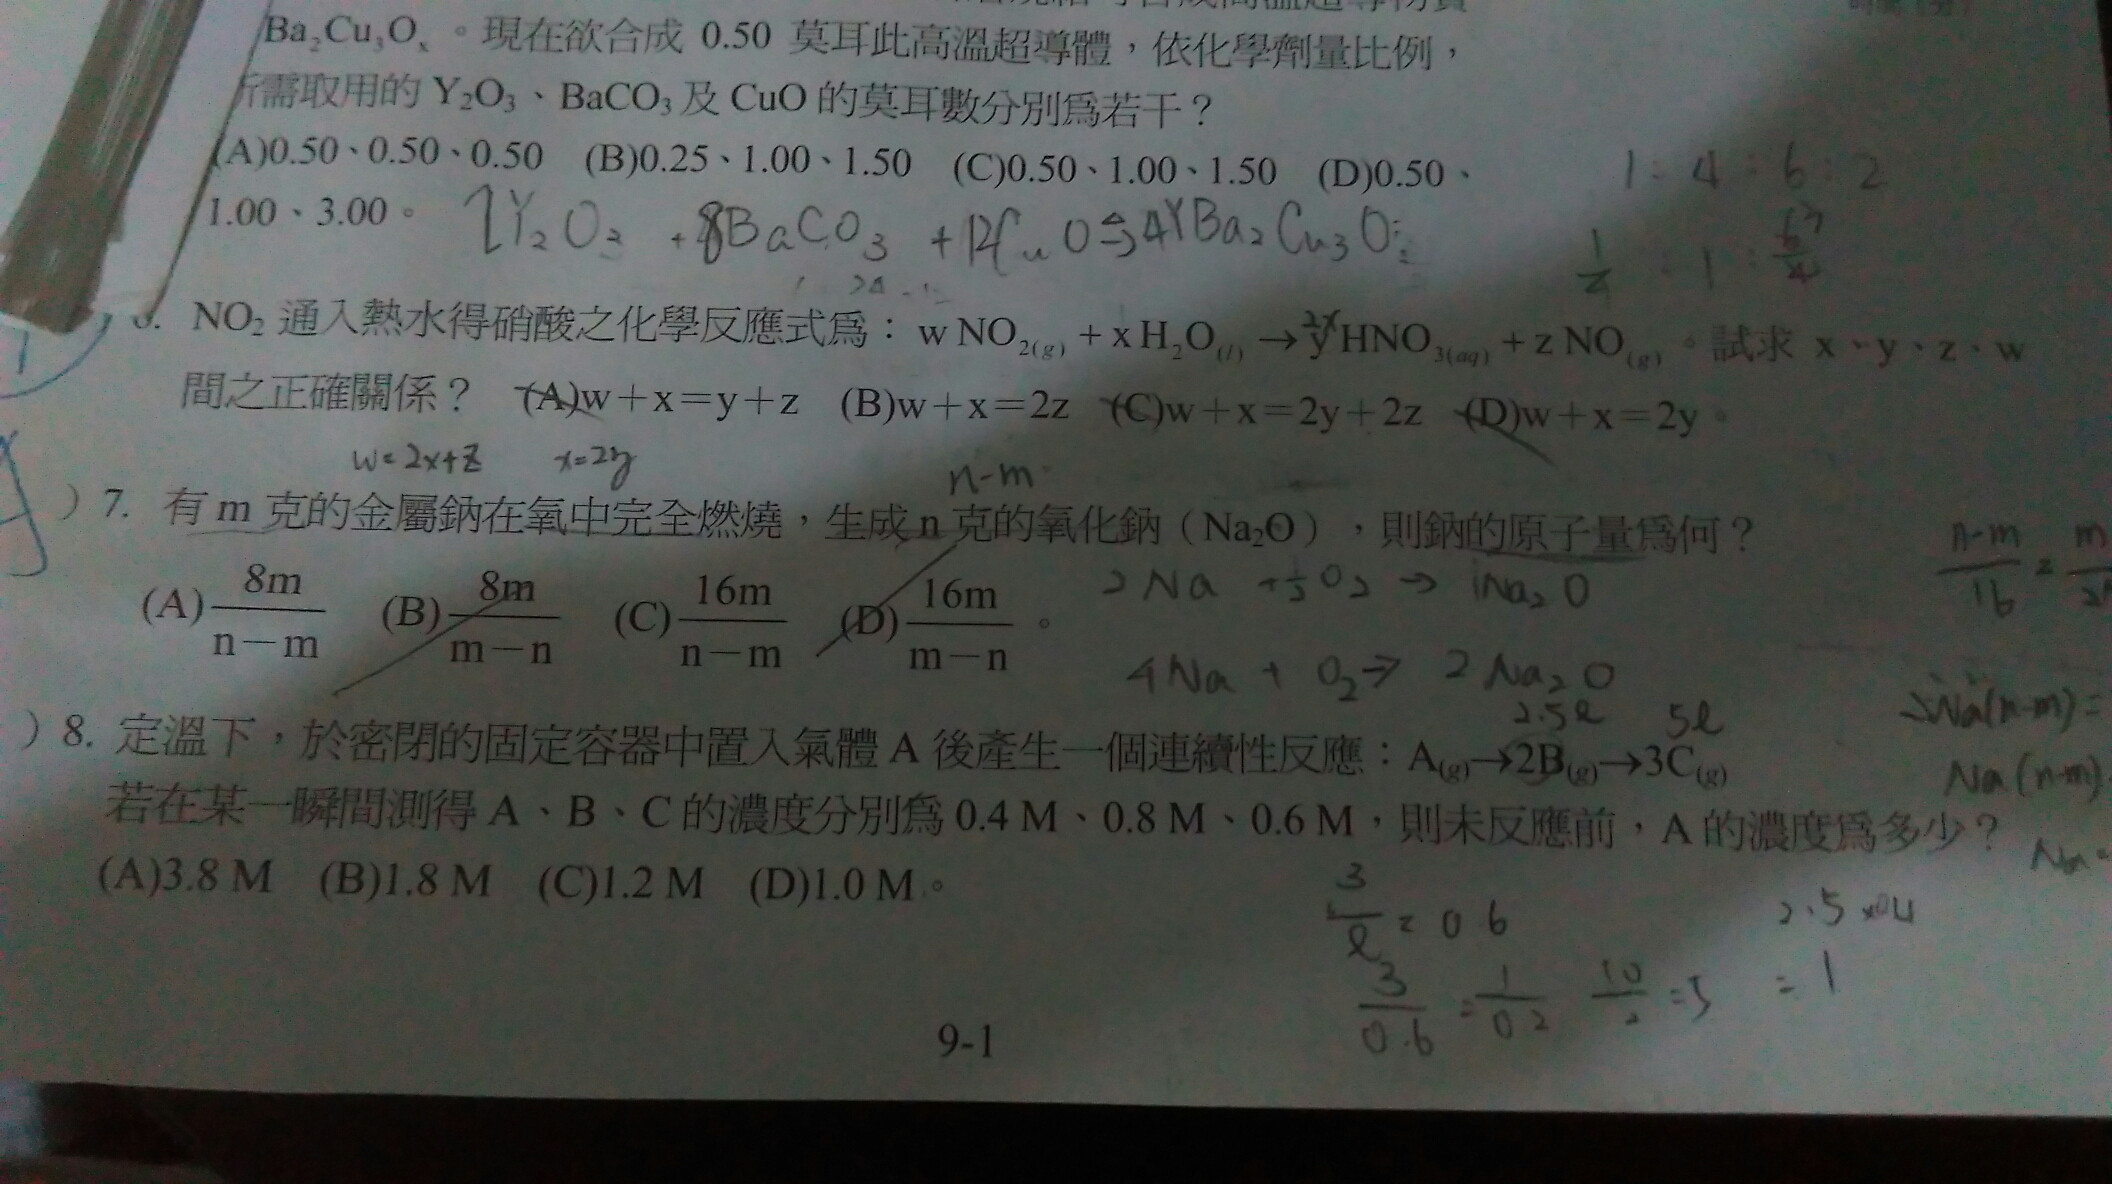 Ba₂Cu₃Oₓ。現在欲合成 0.50 莫耳此高溫超導體，依化學劑量比例，
所需取用的 Y₂O₃、BaCO₃ 及 CuO 的莫耳數分別為若干？
(A)0.50、0.50、0.50 (B)0.25、1.00、1.50 (C)0.50、1.00、1.50 (D)0.50、
1 : 4 : 6 : 2
1.00、3.00。
Y₂O₃ + 8BaCO₃ + 12CuO → 4YBa₂Cu₃O
NO₂ 通入熱水得硝酸之化學反應式為：w NO₂(g) + x H₂O(l) → y HNO₃(aq) + z NO(g)。試求 x、y、z、w
間之正確關係？ (A)w＋x＝y＋z (B)w＋x＝2z (C)w＋x＝2y＋2z (D)w＋x＝2y。
w=2x+z x=2y
n-m
) 7. 有 m 克的金屬鈉在氧中完全燃燒，生成 n 克的氧化鈉（Na₂O），則鈉的原子量為何？
(A) 8m/(n－m) (B) 8m/(m－n) (C) 16m/(n－m) (D) 16m/(m－n)。
2Na + ½O₂ → 1Na₂O
4Na + O₂ → 2Na₂O
2.5l 5l
) 8. 定溫下，於密閉的固定容器中置入氣體 A 後產生一個連續性反應：A(g)→2B(g)→3C(g)
若在某一瞬間測得 A、B、C 的濃度分別為 0.4 M、0.8 M、0.6 M，則未反應前，A 的濃度為多少？
(A)3.8 M (B)1.8 M (C)1.2 M (D)1.0 M。
3/l = 0.6
3/0.6 = 1/0.2 10/2 = 5
= 1
9-1